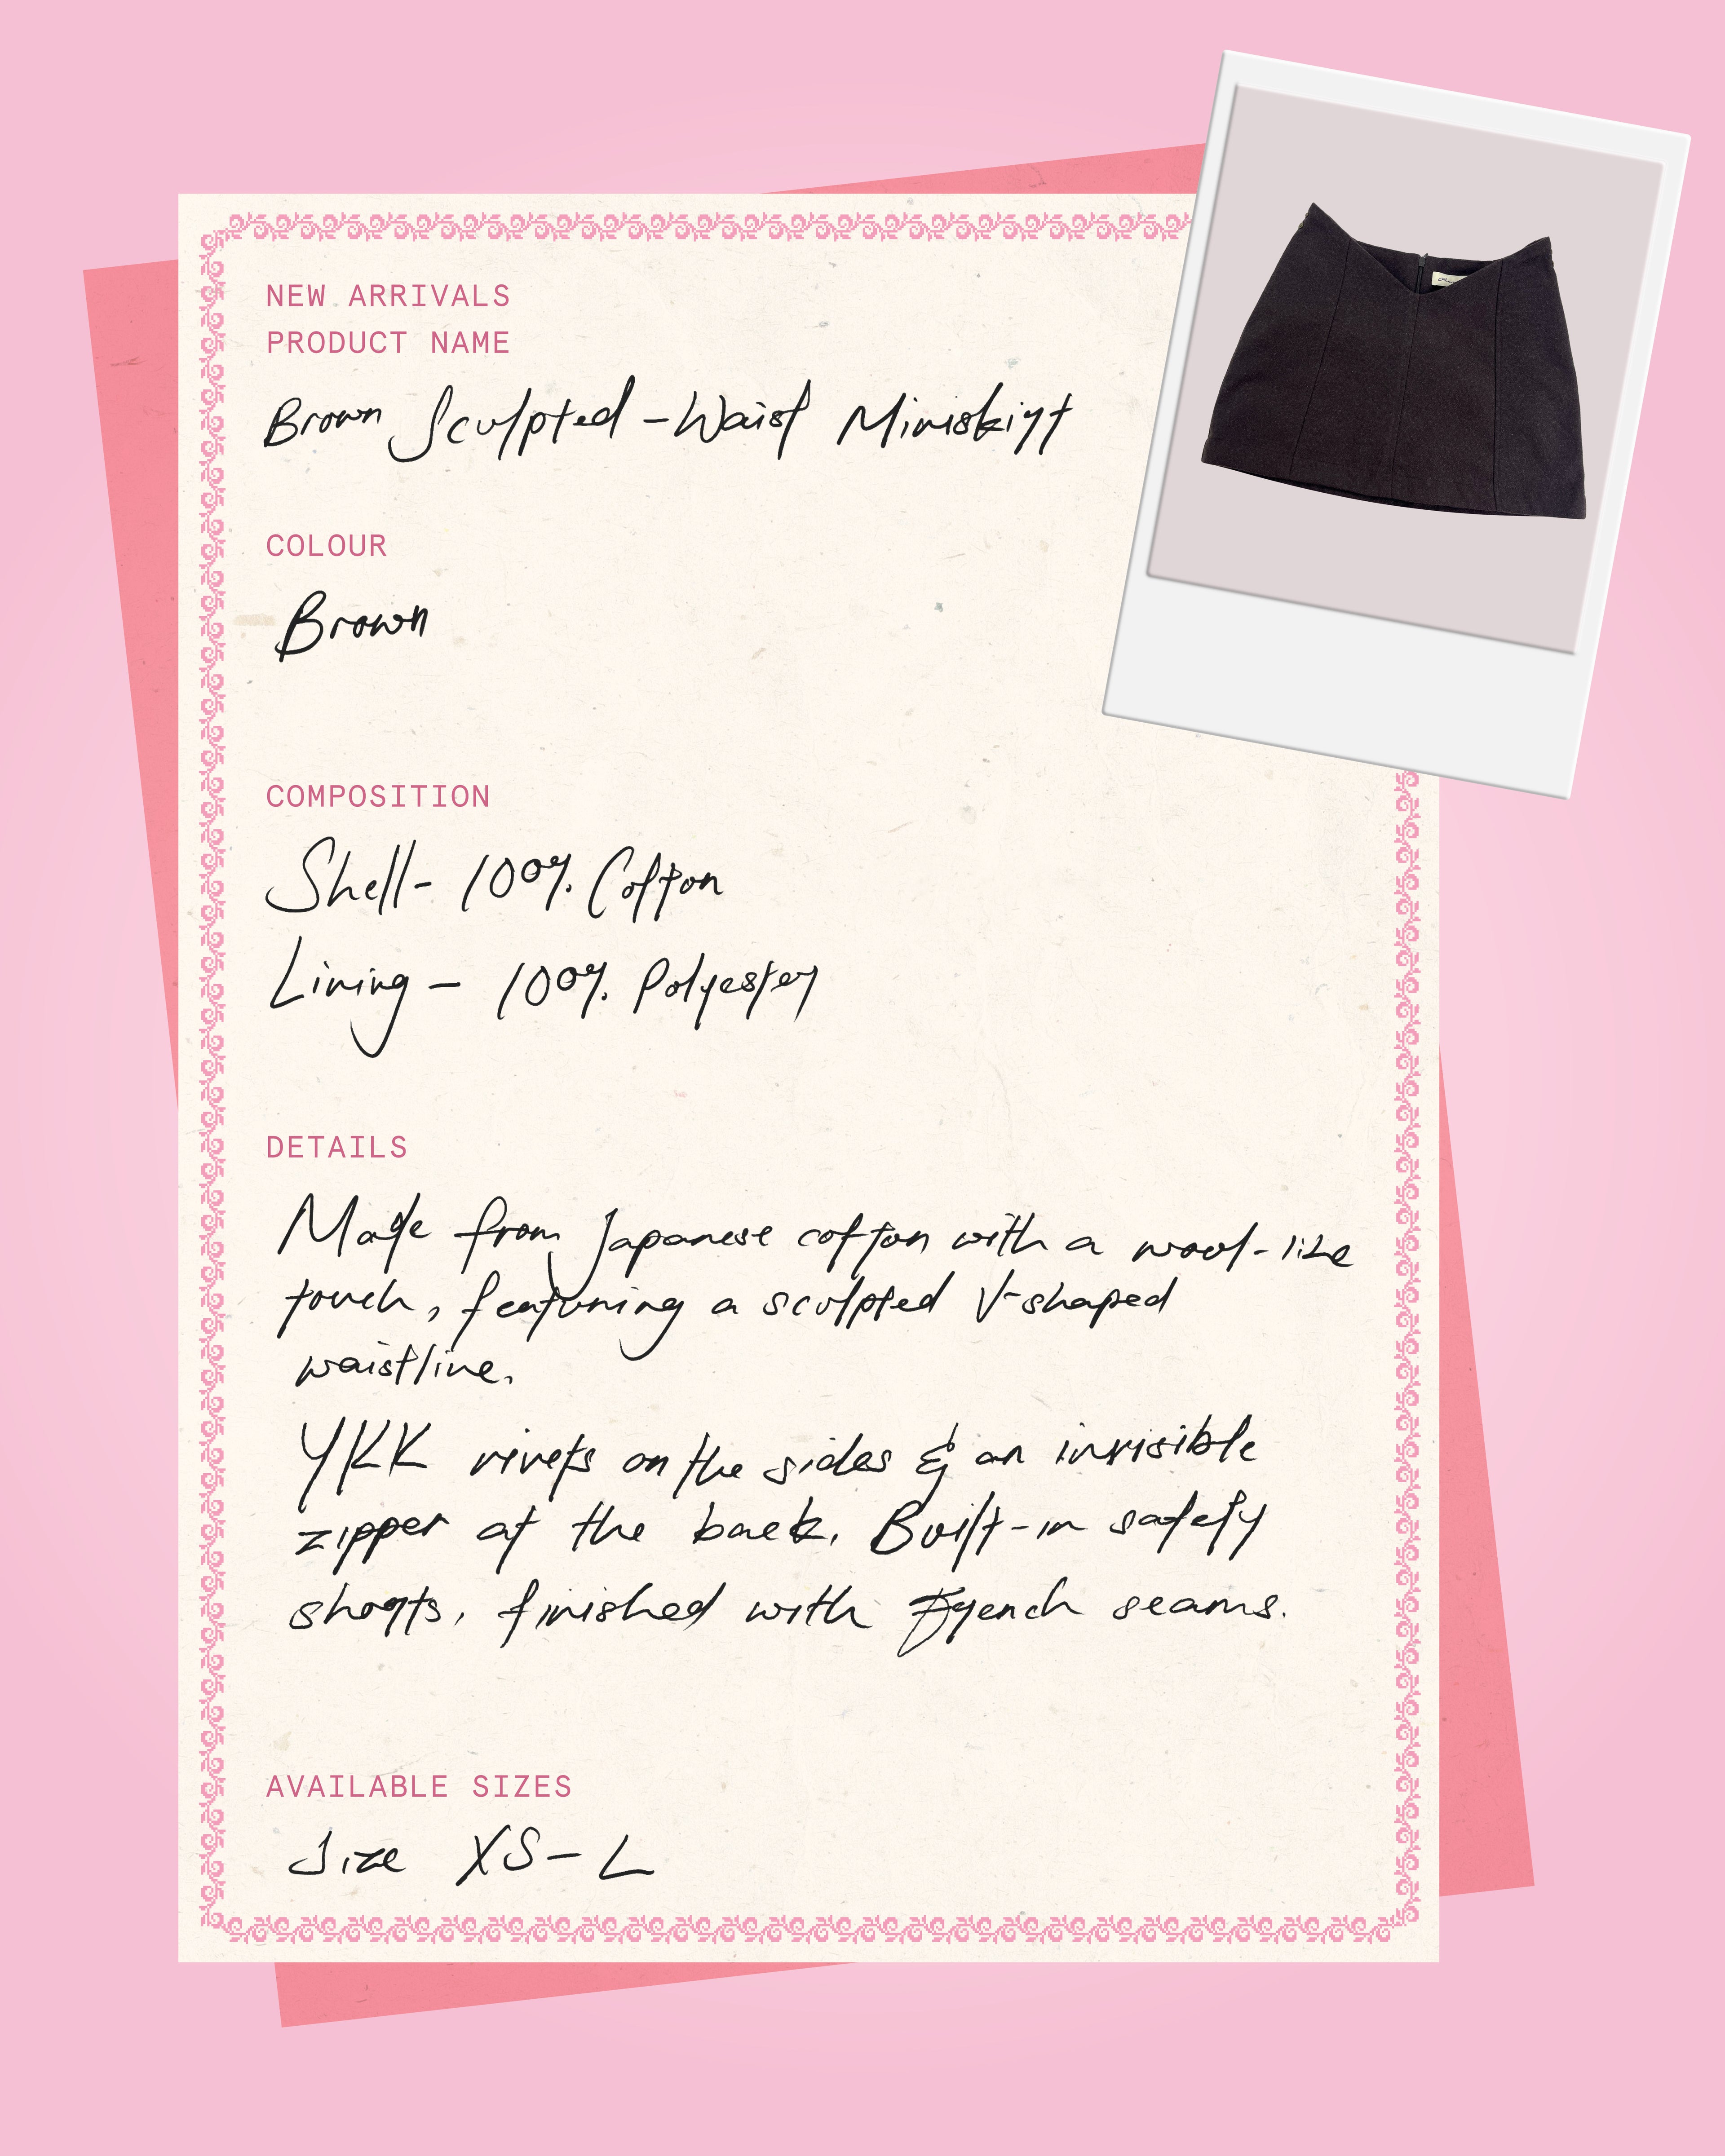 NEW ARRIVALS
PRODUCT NAME
Brown Sculpted-Waist Miniskirt
COLOUR
Brown
COMPOSITION
Shell- 100% Cotton
Lining - 100% Polyester
DETAILS
Made from Japanese cotton with a wool-like
touch, featuring a sculpted V-shaped
waistline.
YKK rivets on the sides & an invisible
zipper at the back. Built-in safety
shorts, finished with French seams.
AVAILABLE SIZES
Size XS-L